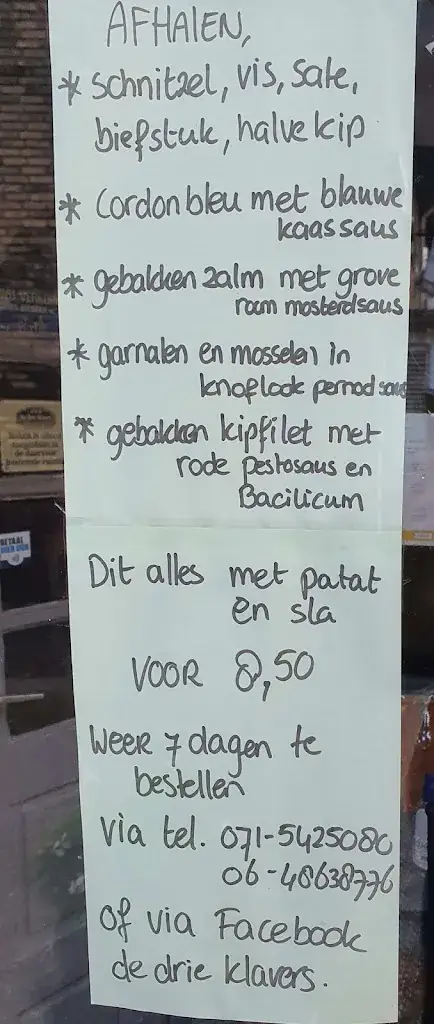 AFHALEN,
* schnitzel, vis, sate,
biefstuk, halve kip
* Cordon bleu met blauwe
kaassaus
* gebakken zalm met grove
room mosterdsaus
* garnalen en mosselen in
knoflook pernod saus
* gebakken kipfilet met
rode pestosaus en
Bacilicum
Dit alles met patat
en sla
VOOR 8,50
Weer 7 dagen te
bestellen
via tel. 071-5425080
06-48638776
of via Facebook
de drie klavers.
BETAAL